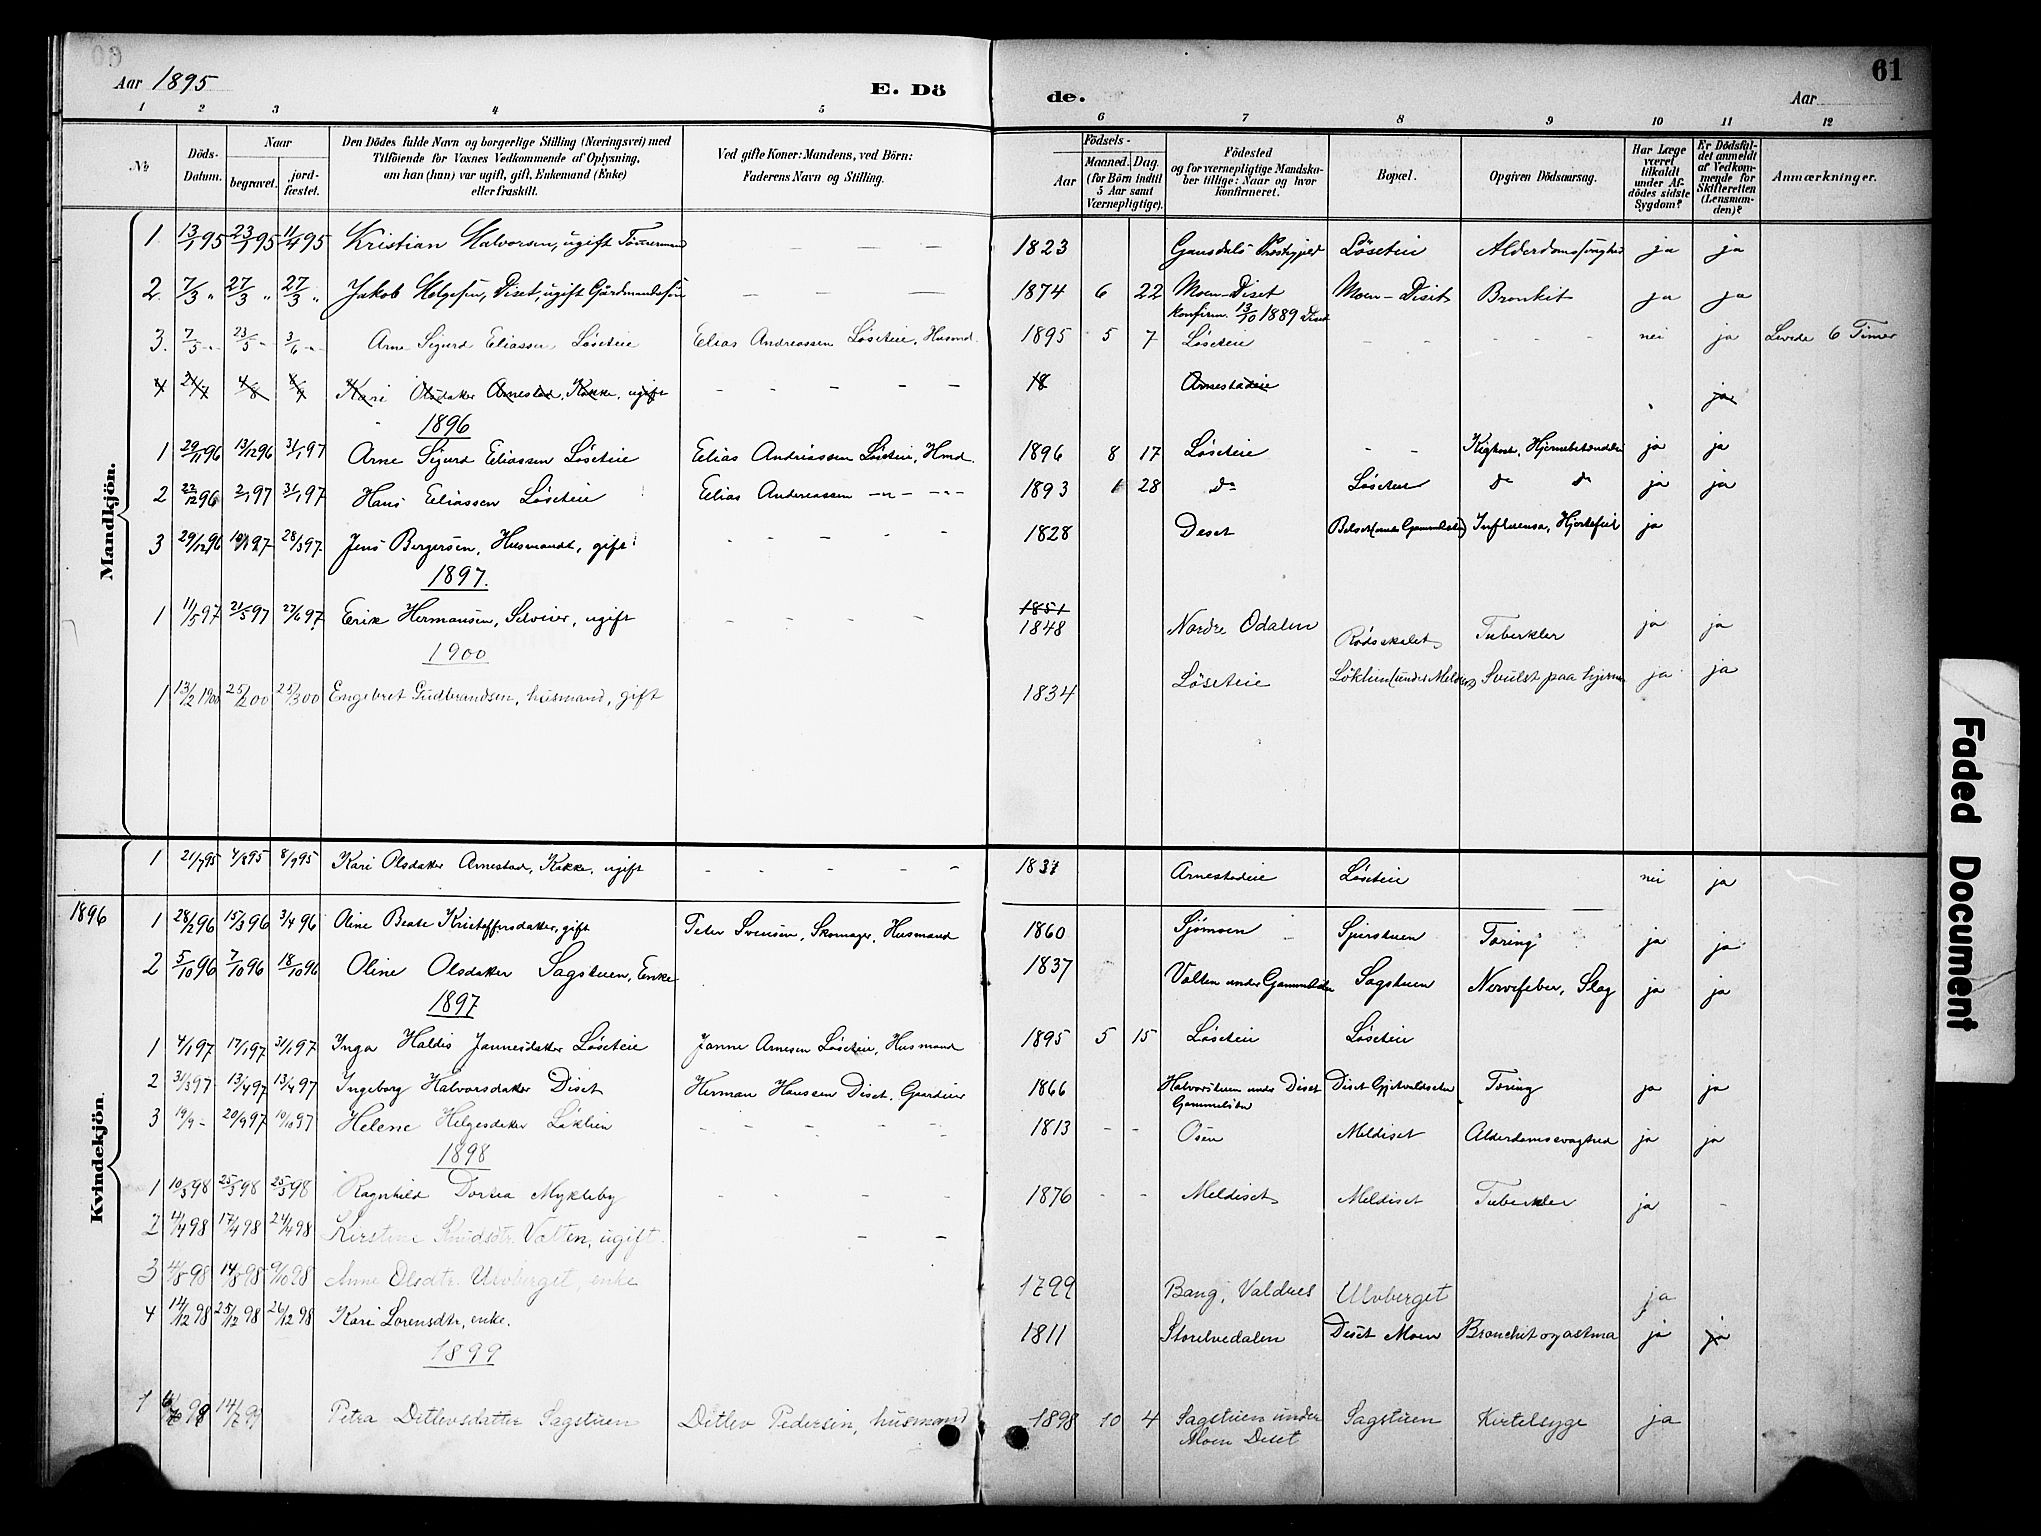 60
Aar 1895
E. Dö
de.
61
Aar
1 2 3 4 5 6 7 8 9 10 11 12
No
Döds-Datum.
Naar
begravet.
jord-fæstet.
Den Dödes fulde Navn og borgerlige Stilling (Næringsvei) med
Tilföiende for Voxnes Vedkommende af Oplysning,
om han (hun) var ugift, gift, Enkemand (Enke)
eller fraskilt.
Ved gifte Koner: Mandens, ved Börn:
Faderens Navn og Stilling.
Födsels-
Aar
Maaned. Dag.
(for Börn indtil
5 Aar samt
Værnepligtige).
Födested
og for værnepligtige Mandska-
ber tillige: Naar og hvor
konfirmeret.
Bopæl.
Opgiven Dödsaarsag.
Har Læge
været
tilkaldt
under Af-
dödes sidste
Sygdom?
Er Dödsfal-
det anmeldt
af Vedkom-
mende for
Skifteretten
(Lensman-
den)?
Anmærkninger.
Mandkjön.
1. 13/1 95 23/1 95 11/4 95 Kristian Halvorsen, ugift Tömmermand – – – 1823 Gausdals Løseteie Alderdoms ja ja
2. 7/3 „ 27/3 „ 27/3 „ Jakob Helgesen, Diset, ugift Gårdmandssøn – – – 1874 6 22 Moen-Diset Moen-Diset Bronkit ja ja
konfirm. 13/10 1889 Diset
3. 7/5 – 23/5 – 3/6 – Arne Sigurd Eliassen Løseteie Elias Andreassen Løseteie, Husmd. 1895 5 7 Løseteie nei ja Levede 6 Timer
4 21/7 4/8 8/9 Kari Olsdatter Arnestad, Kokke, ugift – – – – – 18 Arnestadeie ja
1896
1 29/11 96 13/12 96 31/1 97 Arne Sigurd Eliassen Løseteie Elias Andreassen Løseteie, Hmd. 1896 8 17 Løseteie – – Kighoste, Hjernebetændelse ja ja
2 22/12 96 2/1 97 31/1 97 Hans Eliassen Løseteie Elias Andreassen –„– –„– 1893 1 28 do Løseteie do do ja ja
3 29/12 96 97 28/3 97 Jens Bergersen, Husmand, gift – – – – 1828 Deset (under Gammelsten) Influensa, Hjertefeil ja
1897.
1 11/5 97 21/5 97 27/6 97 Erik Hermansen, Selveier, ugift – – – – 1851
1848 Nordre Odalen Rødsskalet Tuberkler ja ja
1900
1 13/2 1900 25/2 00 25/3 00 Engebret Gudbrandsen, husmand, gift 1834 Løseteie Løklien (under Meldiset) Svulst paa hjernen ja ja
Kvindekjön.
1 21/7 95 4/8 95 8/9 95 Kari Olsdatter Arnestad, Kokke, ugift – – – – – 1831 Arnestadeie Løseteie nei ja
1896 1 28/2 96 15/3 96 3/4 96 Oline Beate Kristoffersdatter, gift Peter Svensen, Skomager, Husmand 1860 Sjømoen Spirstuen Tæring ja ja
2 5/10 96 7/10 96 18/10 96 Oline Olsdatter Sagstuen, Enke 1837 Valten under Gammelsten Sagstuen Nervefeber, Slag ja ja
1897
1 4/1 97 17/1 97 31/1 97 Inga Haldis Jannesdatter Løseteie Janne Arnesen Løseteie, Husmand 1895 5 15 Løseteie Løseteie
2 31/3 97 13/4 97 13/4 97 Ingeborg Halvorsdatter Diset Herman Hansen Diset, Gaardeier 1866 Halvorstuen under Diset Diset Tæring ja ja
3 19/9 – 20/9 97 10/10 97 Helene Helgesdatter Løklien – – – – – 1813 – – Osen Meldiset Alderdomssvaghed ja ja
1898
1 10/3 98 25/3 98 25/3 98 Ragnhild Dortea Mykleby – – – – 1876 – – Meldiset Meldiset Tuberkler ja –
2 11/4 98 17/4 98 24/4 98 Kirstine Knudsdtr. Valten, ugift – –
3 4/8 98 14/8 98 9/10 98 Anne Olsdtr. Ulvberget, enke 1799 Bang, Valdres Ulvberget ja
4 14/12 98 25/12 98 26/12 98 Kari Lorensdtr, enke. 1811 Storelvedalen Deset Moen Bronchit og astma ja ja
1899
1 98 14/7 99 Petra Detlevsdatter Sagstuen Detlev Pedersen, husmand 1898 10 4 Sagstuen under Sagstuen Kirtelsyge ja
Moen Deset
Faded Document